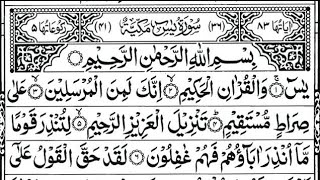 اٰیَاتُهَا ۸۳ (۳۶) سُوْرَةُ یٰسٓ مَكِّیَّةٌ (۴۱) رُكُوْعَاتُهَا ۵
بِسْمِ اللّٰهِ الرَّحْمٰنِ الرَّحِیْمِ
یٰسٓ ۚ۝۱ وَ الْقُرْاٰنِ الْحَكِیْمِ ۙ۝۲ اِنَّكَ لَمِنَ الْمُرْسَلِیْنَ ۙ۝۳ عَلٰى
صِرَاطٍ مُّسْتَقِیْمٍ ؕ۝۴ تَنْزِیْلَ الْعَزِیْزِ الرَّحِیْمِ ۙ۝۵ لِتُنْذِرَ قَوْمًا
مَّاۤ اُنْذِرَ اٰبَآؤُهُمْ فَهُمْ غٰفِلُوْنَ ۝۶ لَقَدْ حَقَّ الْقَوْلُ عَلٰۤى